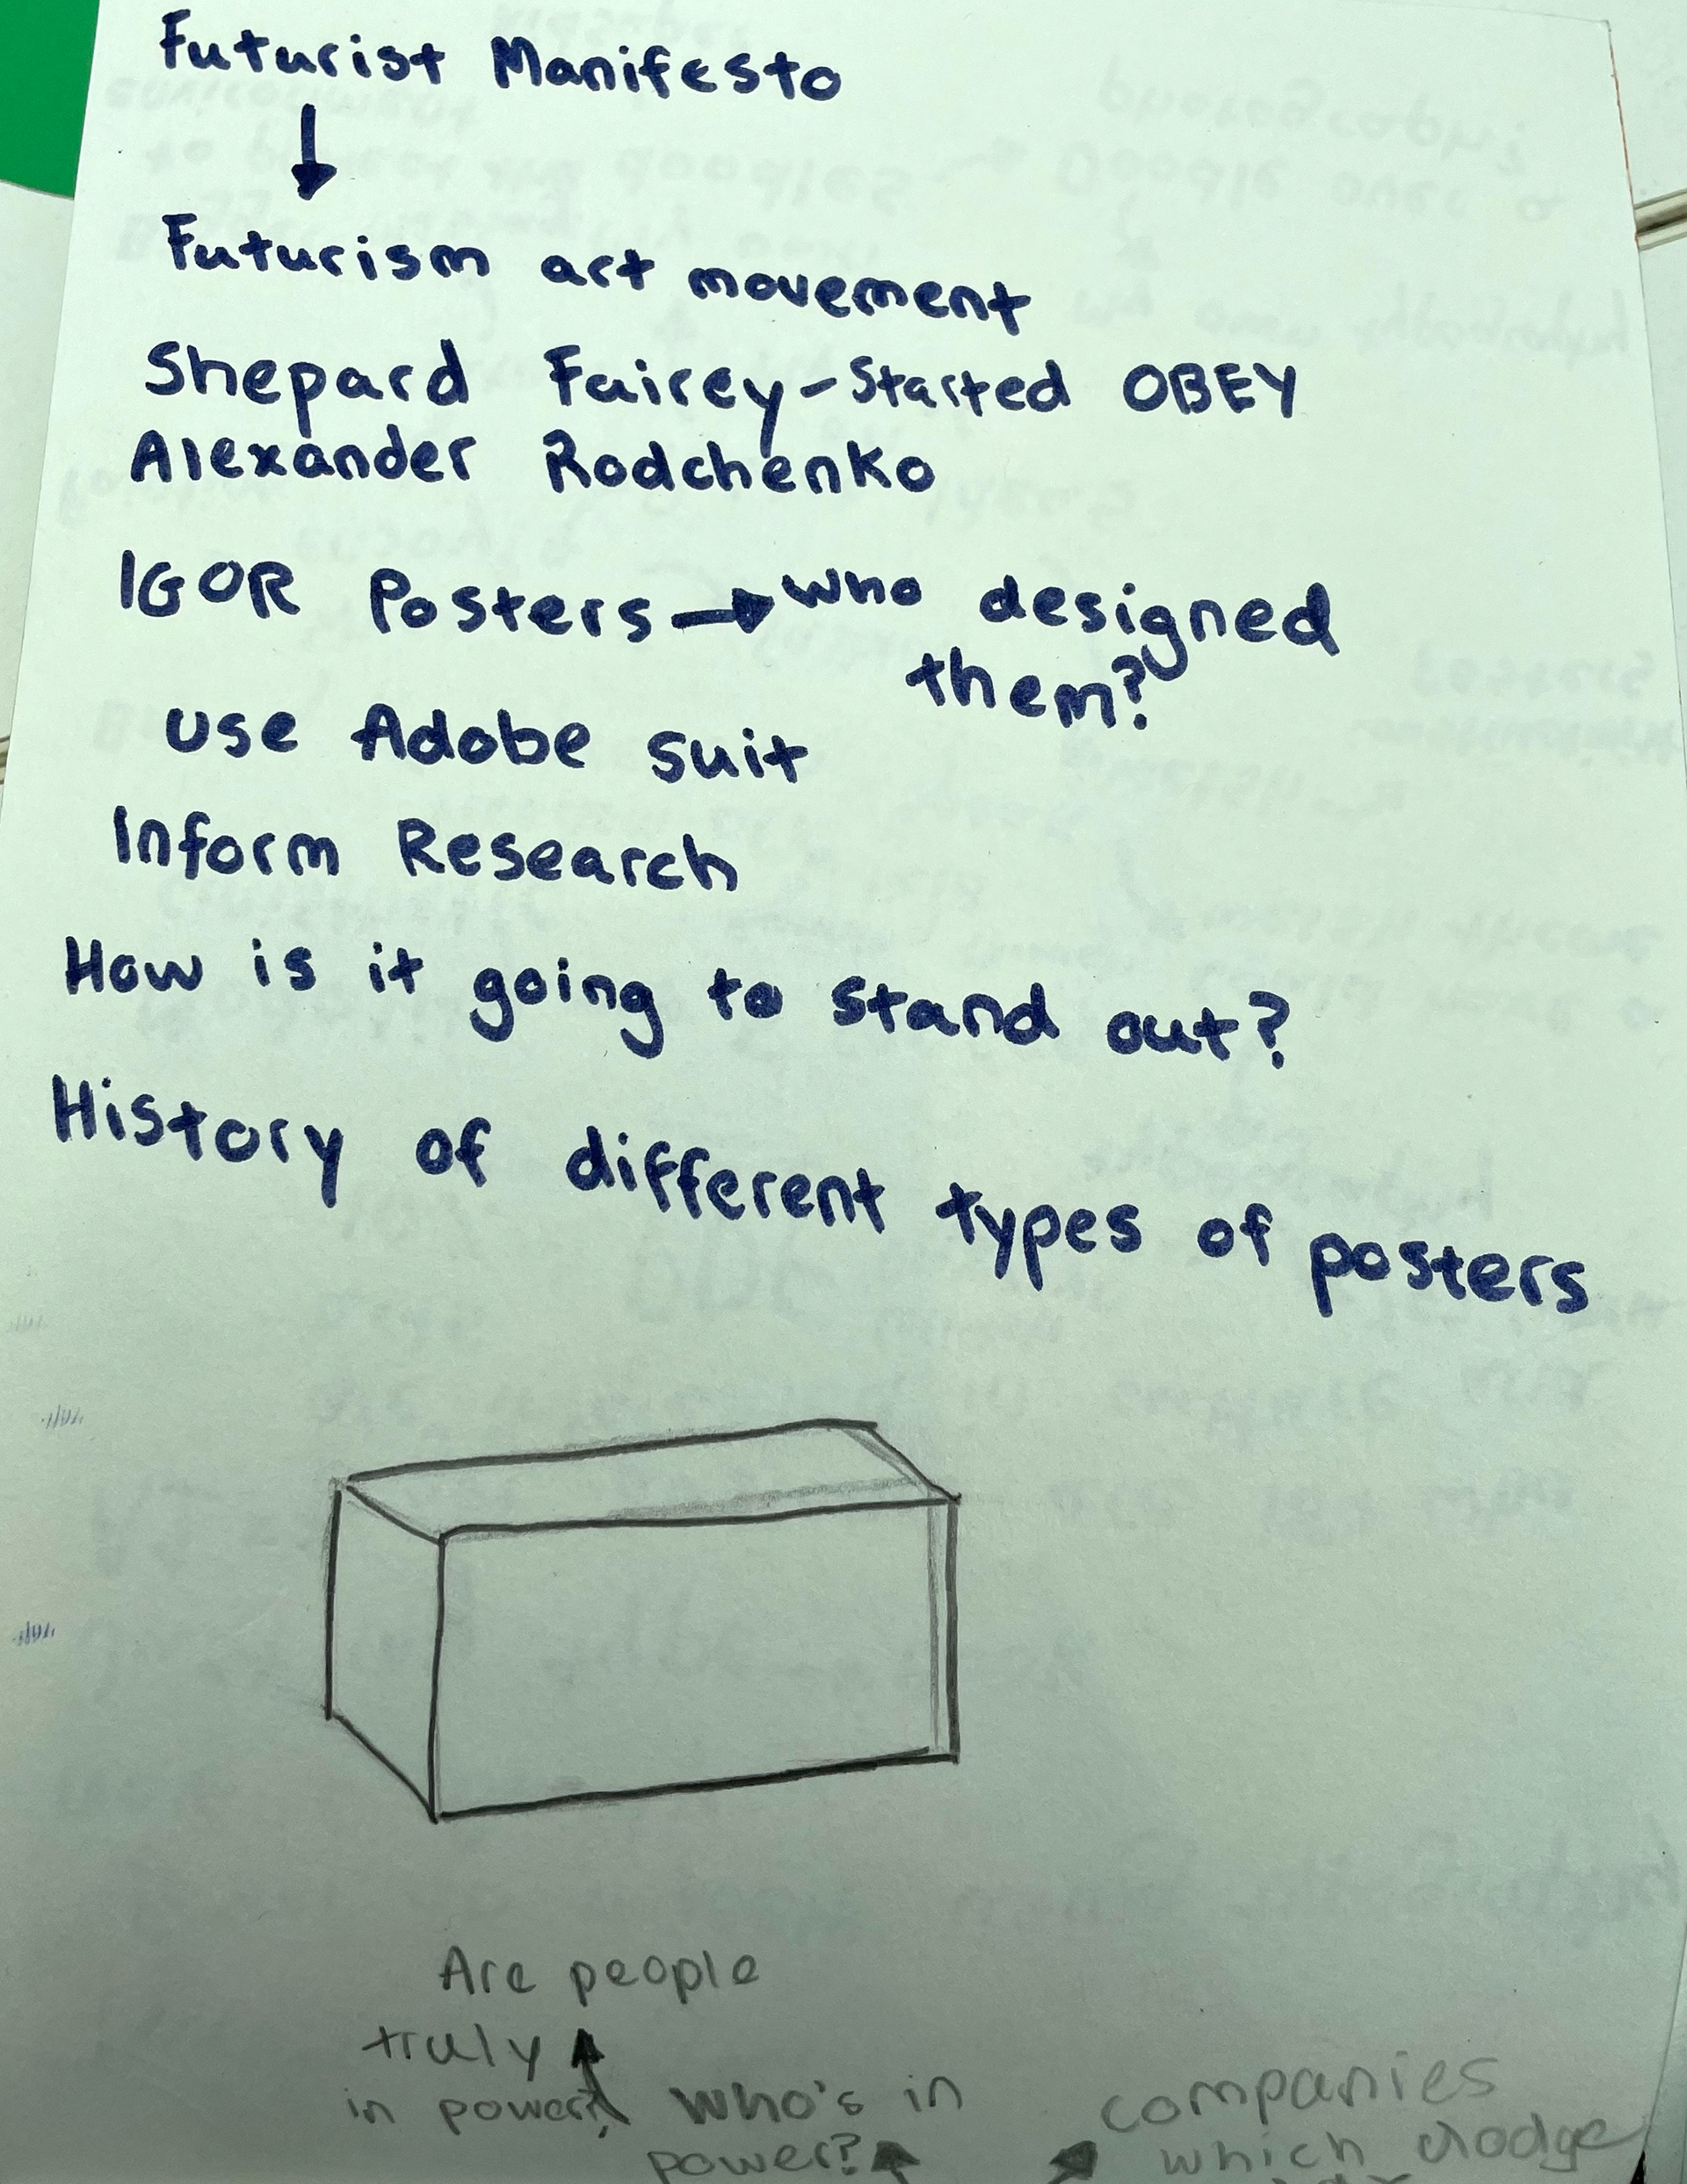 Futurist Manifesto
↓
Futurism art movement
Shepard Fairey - Started OBEY
Alexander Rodchenko
IGOR Posters → who designed
them?
use Adobe suit
Inform Research
How is it going to stand out?
History of different types of posters
Are people
truly
in power?
who's in
power?
companies
which dodge